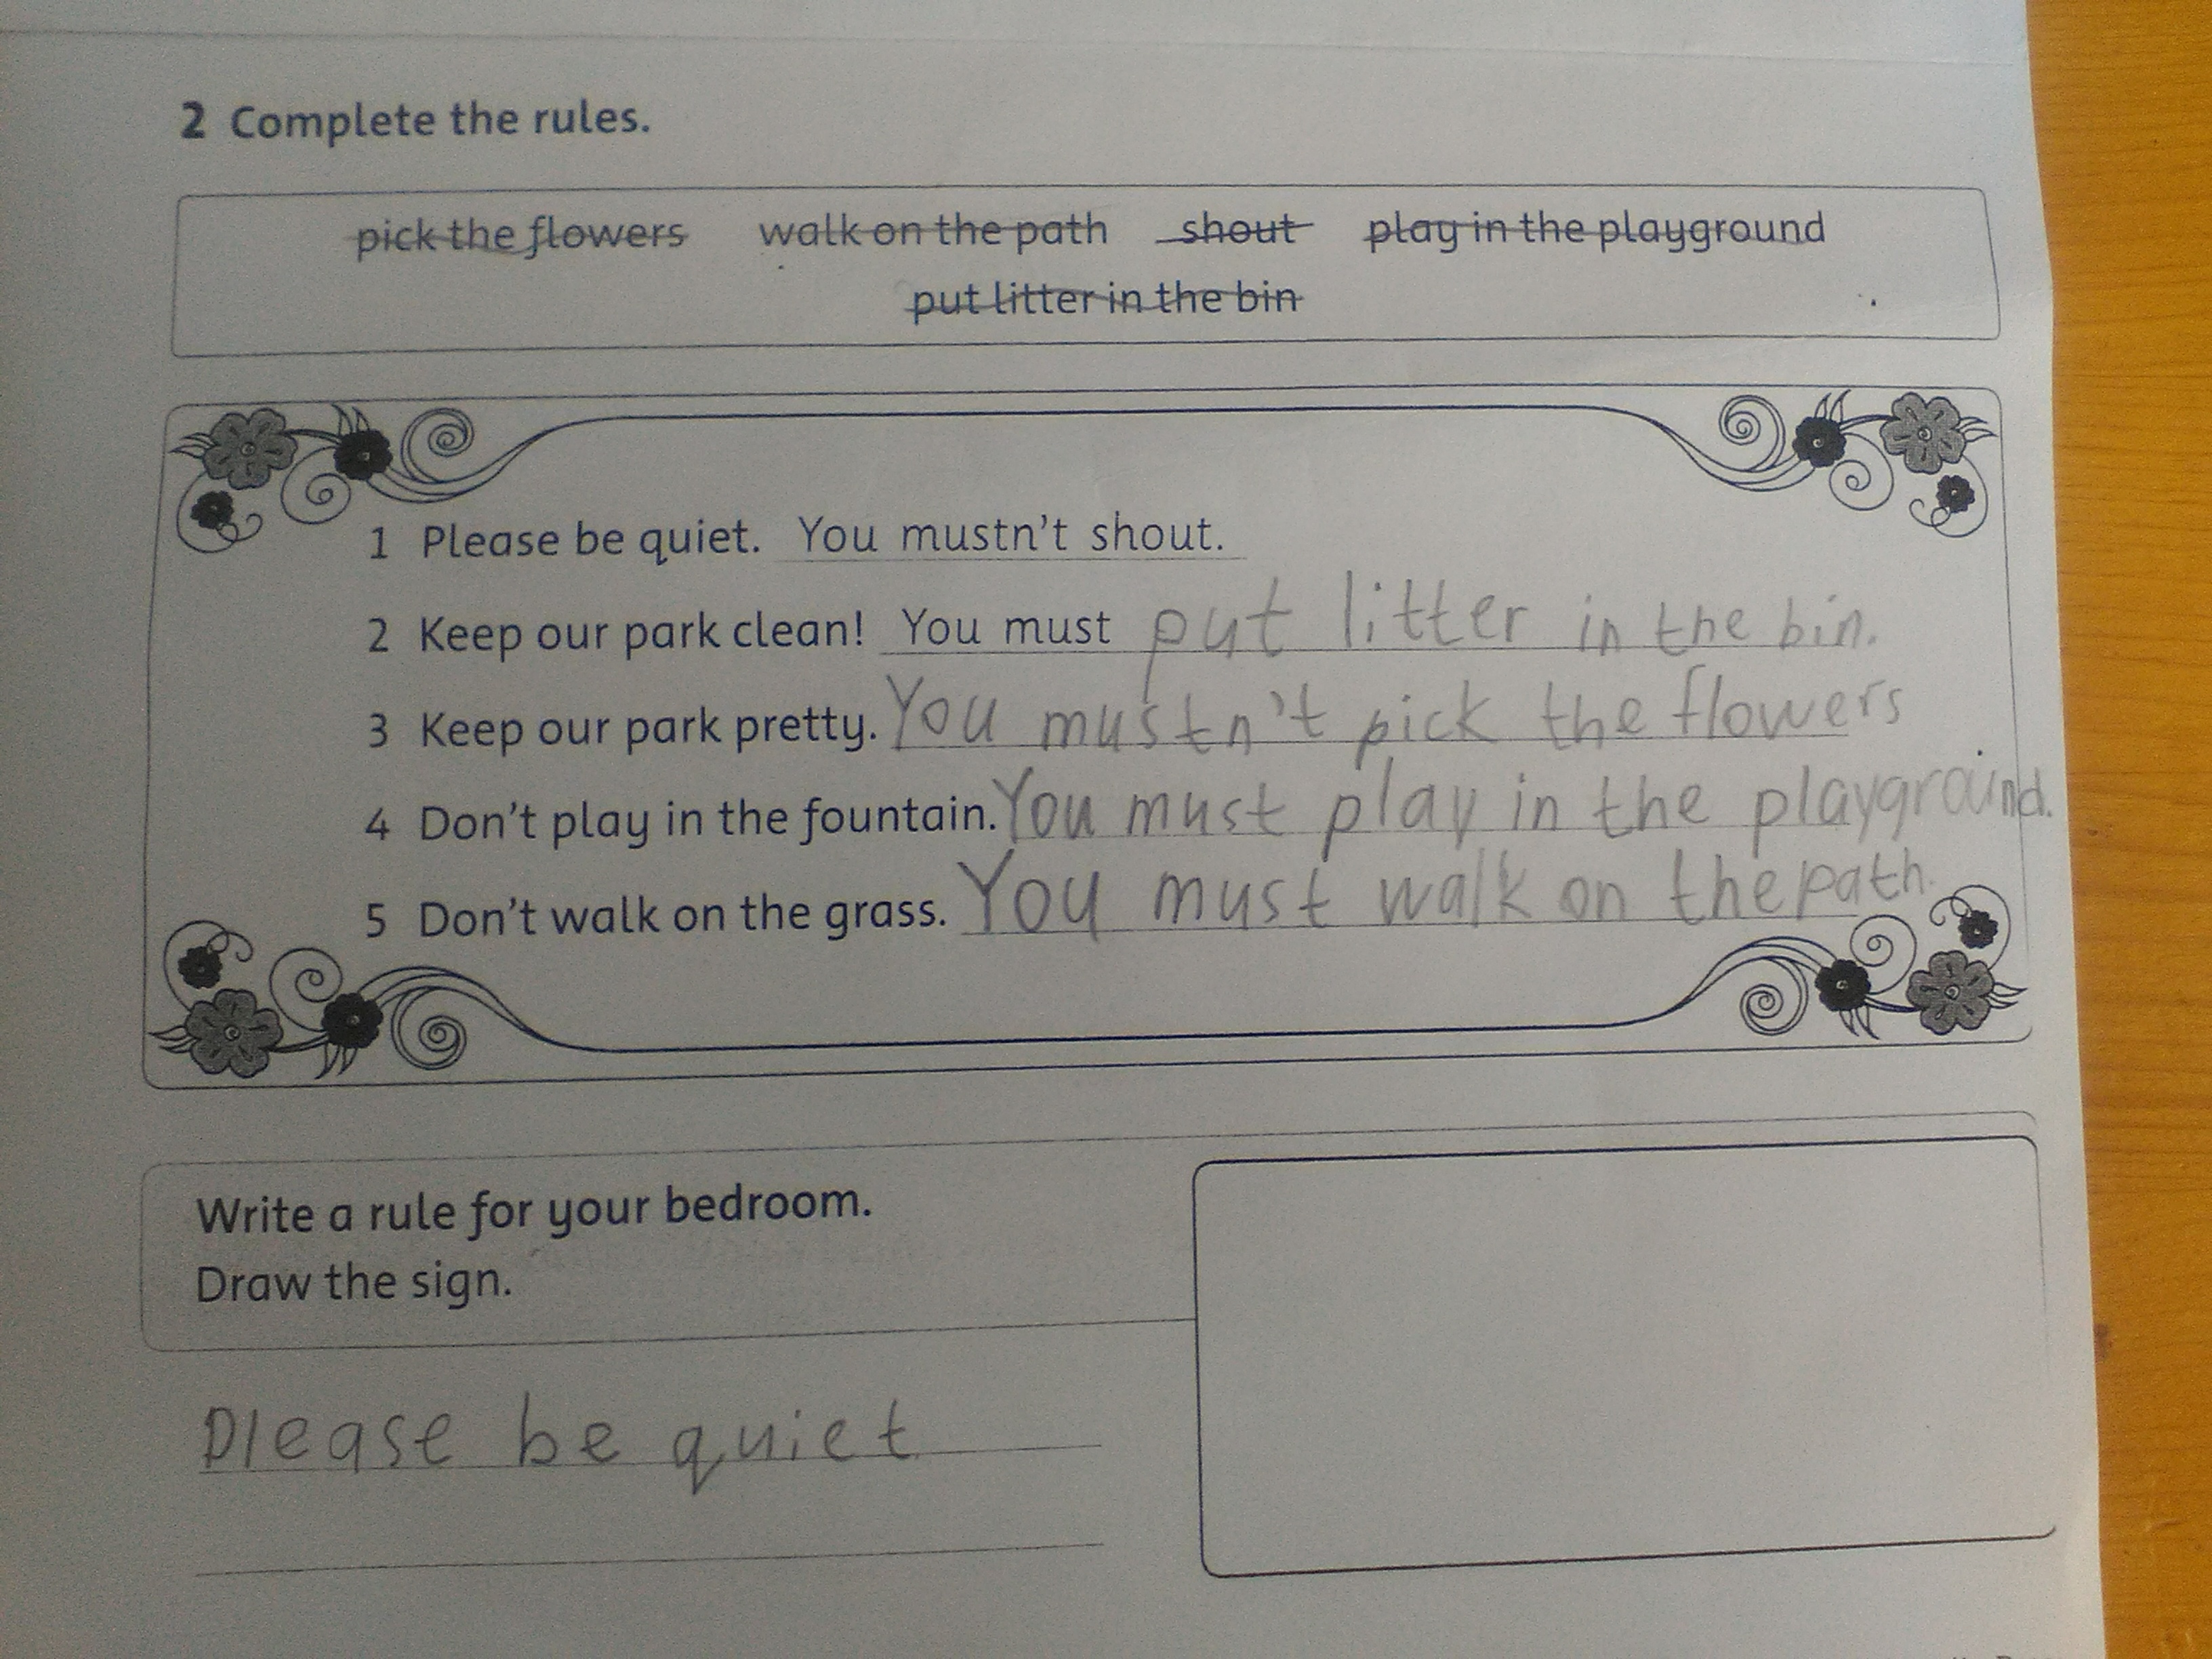 2 Complete the rules.
pick the flowers walk on the path shout play in the playground
put litter in the bin
1 Please be quiet. You mustn't shout.
2 Keep our park clean! You must put litter in the bin.
3 Keep our park pretty. You mustn't pick the flowers
4 Don't play in the fountain. You must play in the playground.
5 Don't walk on the grass. You must walk on the path.
Write a rule for your bedroom.
Draw the sign.
Please be quiet